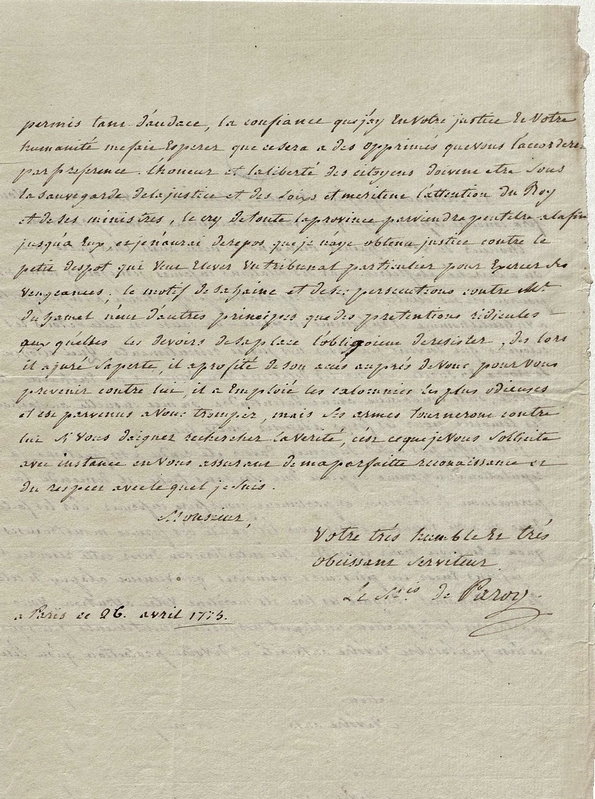 permis tant d'audace, la confiance que j'ay En votre justice Et Votre
humanité me fait Esperer que ce sera a des opprimés que vous l'accorderez
par preference. l'honeur et la liberté des citoyens doivent etre sous
la sauvegarde de la justice et des loix et meritent l'attention du Roy
et de ses ministres, le cry de toute la province parviendra peut Etre a la fin
jusqu'a Eux, et je n'aurai de repos que je n'aye obtenu justice contre le
petit despot qui veut Elever un tribunal particulier pour Exercer des
vengeances; le motif de sa haine et de ses persecutions contre Mr
du hamel n'eut d'autres principes que des pretentions ridicules
aux quelles les devoirs de sa place l'obligoient de resister, des lors
il a juré sa perte, il a profité de son acces auprés de Vous pour vous
prevenir contre lui, il a Emploié les calomnies les plus odieuses
et est parvenus a Vous tromper, mais ses armes tourneront contre
lui si Vous daignez rechercher la Verité, c'est ce que je Vous sollicite
avec instance en Vous assurant de ma parfaitte reconaissance et
du respect avec le quel je suis.
Monsieur,
Votre trés humble Et trés
obeissant Serviteur.
Le Mis de Paroy
a Paris ce 26. avril 1775.